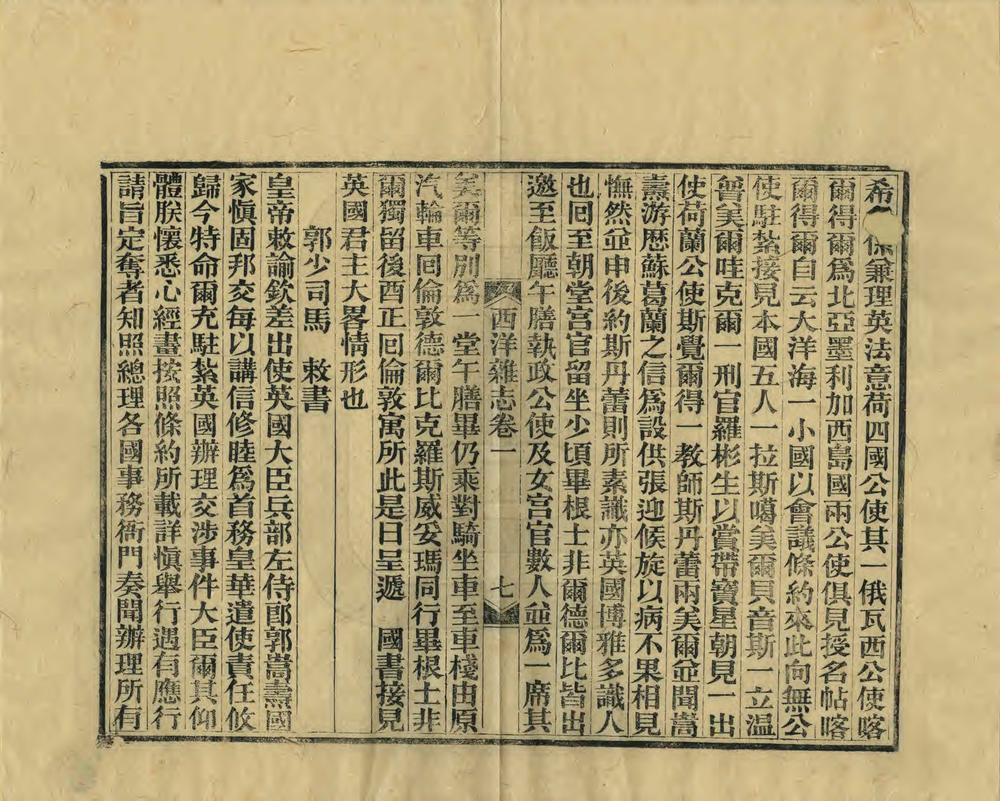 希係兼理英法意荷四國公使其一俄瓦西公使喀
爾得爾爲北亞墨利加西島國兩公使俱見授名帖喀
爾得爾自云大洋海一小國以會議條約來此向無公
使駐紮接見本國五人一拉斯噶美爾貝音斯一立温
曾美爾哇克爾一刑官羅彬生以賞帶寶星朝見一出
使荷蘭公使斯覺爾得一教師斯丹蕾兩美爾並聞嵩
燾游歷蘇葛蘭之信爲設供張迎候旋以病不果相見
憮然並申後約斯丹蕾則所素識亦英國博雅多識人
也回至朝堂宮官留坐少頃畢根士非爾德爾比皆出
邀至飯廳午膳執政公使及女宮官數人並爲一席其
西洋雜志卷一
七
美爾等別爲一堂午膳畢仍乘對騎坐車至車棧由原
汽輪車回倫敦德爾比克羅斯威妥瑪同行畢根士非
爾獨留後酉正回倫敦寓所此是日呈遞　國書接見
英國君主大畧情形也
郭少司馬　敕書
皇帝敕諭欽差出使英國大臣兵部左侍郎郭嵩燾國
家愼固邦交每以講信修睦爲首務皇華遣使責任攸
歸今特命爾充駐紮英國辦理交涉事件大臣爾其仰
體朕懷悉心經畫按照條約所載詳愼舉行遇有應行
請旨定奪者知照總理各國事務衙門奏聞辦理所有